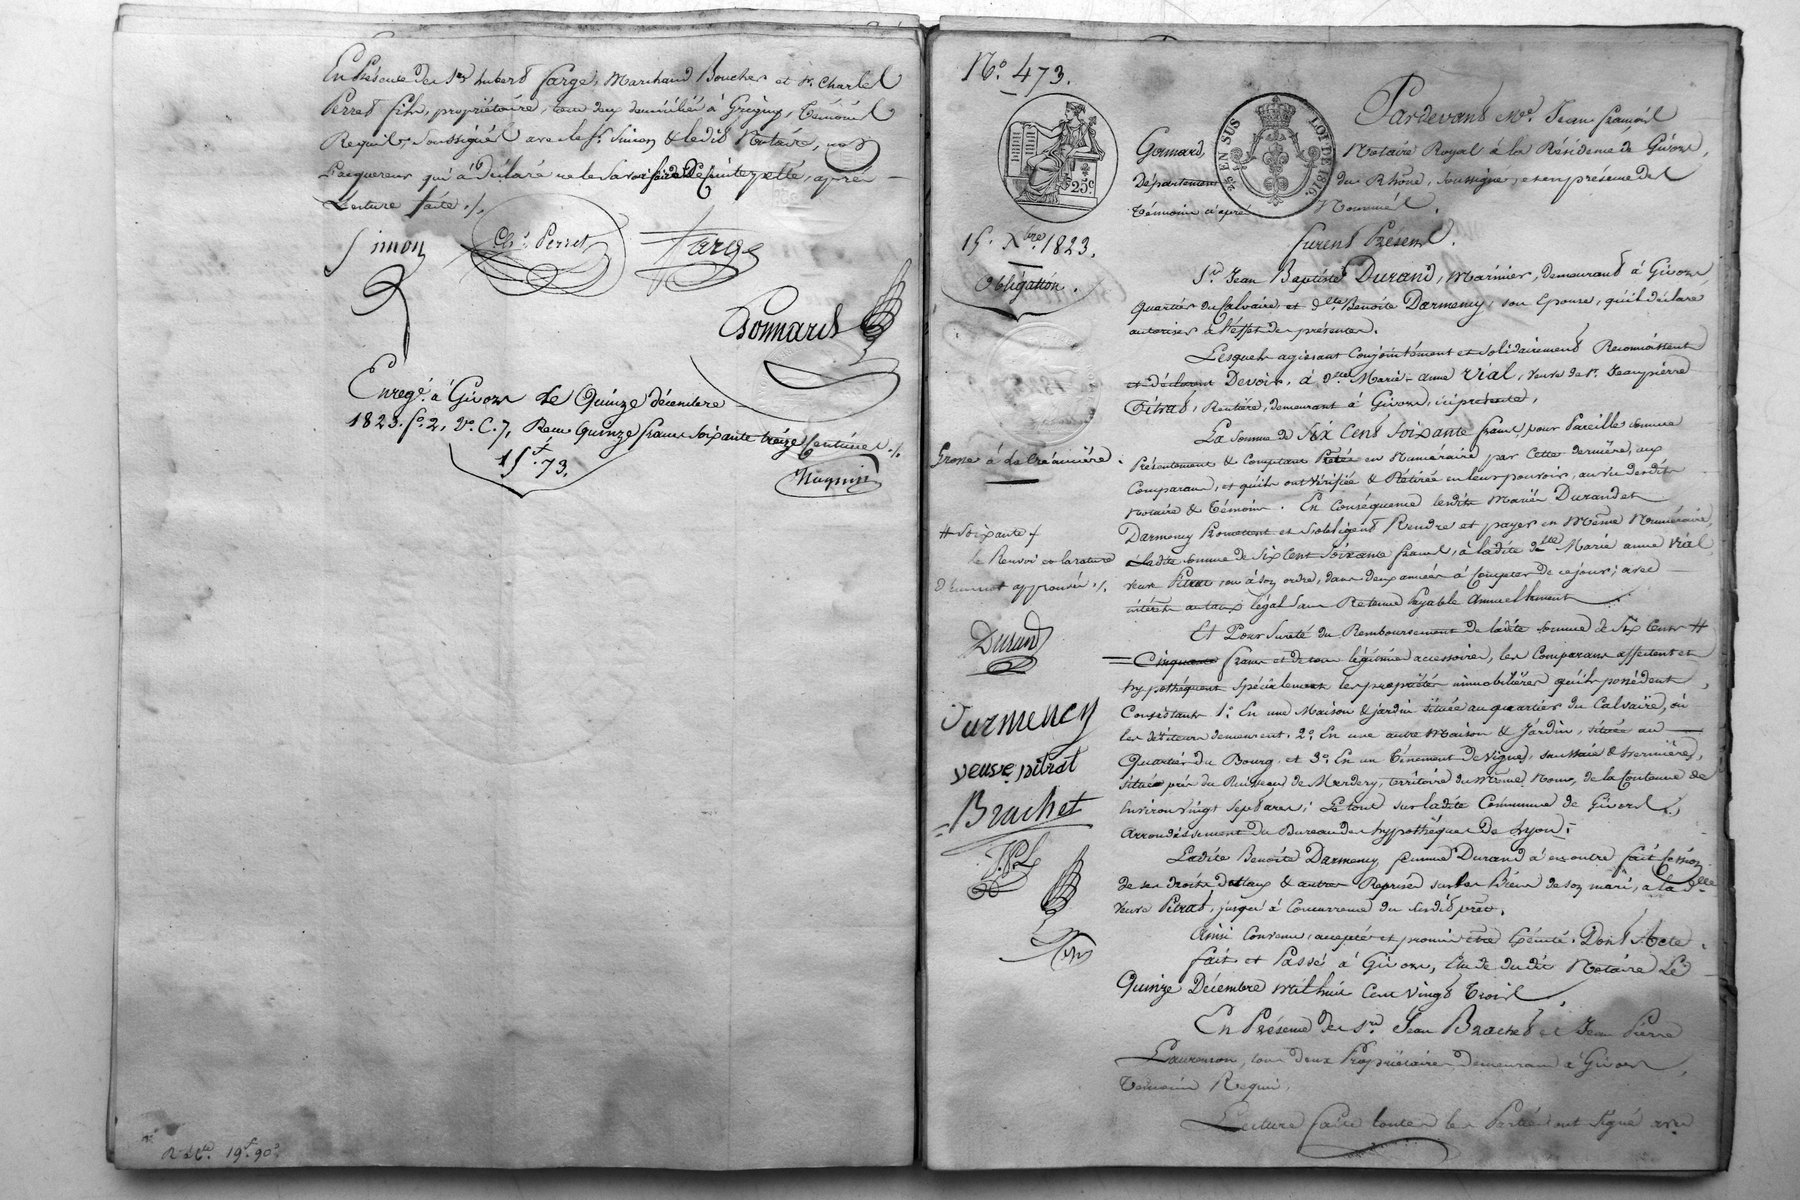 En Présence des Srs hubert farge, Marchand Boucher et Sr. Charles
Perret fils, propriétaire, tous deux domiciliés à Grigny, témoins
Requis, soussignés avec le Sr. Simon & ledit Notaire, non
l'acquéreur qui a déclaré ne le savoir faire de ce interpellé, après
Lecture faite ./.
Simon
Chs. Perret
Farge
Gonnard
Enregé. à Givors le Quinze décembre
1823. fo. 2, Vo. C. 7, Reçu Quinze francs soixante treize Centimes ./.
15f.73.
19f. 90c
No. 473.
25 EN SUS
LOI DE 1816.
25c
Pardevant Me. Jean françois
Gonnard, Notaire Royal à la Résidence de Givors,
Département du Rhône, soussigné, et en présence des
témoins ci après Nommés.
15. Xbre. 1823.
Obligation.
furent Présens.
Sr. Jean Baptiste Durand, Marinier, demeurant à Givors
Quartier du Calvaire et dlle. Benoite Darmency, son épouse, qu'il déclare
autoriser à l'effet des présentes.
Lesquels agissant Conjointement et solidairement Reconnaissent
et déclarent Devoir, à dlle. Marie-anne Vial, veuve de Sr. Jeanpierre
Pitrat, Rentière, demeurant à Givors, ici présente,
La somme de Six Cent Soixante francs, pour Pareille somme
Grosse à la Créancière.
Présentement & Comptant Prêtée en Numéraire par Cette dernière, aux
Comparans, et qu'ils ont Vérifiée & Retirée en leur pouvoir, au vu desdits
Notaire & témoins. En Conséquence lesdits Mariés Durand et
Darmency Promettent et s'obligent Rendre et payer en Même Numéraire,
ladite somme de Six Cent Soixante francs, à ladite dlle. Marie anne Vial
veuve Pitrat, ou à son ordre, dans deux années à Compter de ce jour; avec
intérêts au taux légal sans Retenue Payable Annuellement
# Soixante /
le Renvoi et la rature
d'un mot approuvés ./.
Et Pour Sureté du Remboursement de ladite somme de Six Cents #
Cinquante francs et de tous légitimes accessoires, les Comparans affectent et
hypothéquent spécialement les propriétés immobilières qu'ils possèdent,
Consistant 1o. En une Maison & jardin située au quartier du Calvaire, où
les débiteurs demeurent. 2o. En une autre Maison & Jardin, située au
Quartier du Bourg, et 3o. En un ténement de Vigne, saussaie & hermière,
située près du Ruisseau de Mardery, territoire du Même Nom, de la Contenue de
Environ Vingt Sept ares; Le tout sur ladite Commune de Givors,
Arrondissement du Bureau des hypothèques de Lyon.
Ladite Benoite Darmency, femme Durand a en outre fait Cession
de ses droits dotaux & autres Reprises sur les Biens de son mari, à la dlle
veuve Pitrat, jusqu'à Concurrence du susdit prêt.
Ainsi Convenu, accepté et promis être Exécuté. Dont Acte
fait et Passé à Givors, Etude dudit Notaire Le
Quinze Décembre mil huit Cent Vingt Trois
En Présence des Srs. Jean Brachet et Jean Pierre
Laurenson, tous deux Propriétaires demeurans à Givors,
témoins Requis.
Lecture faite toutes les Parties ont Signé avec
Durand
Darmency
veuve pitrat
Brachet
J.P.L